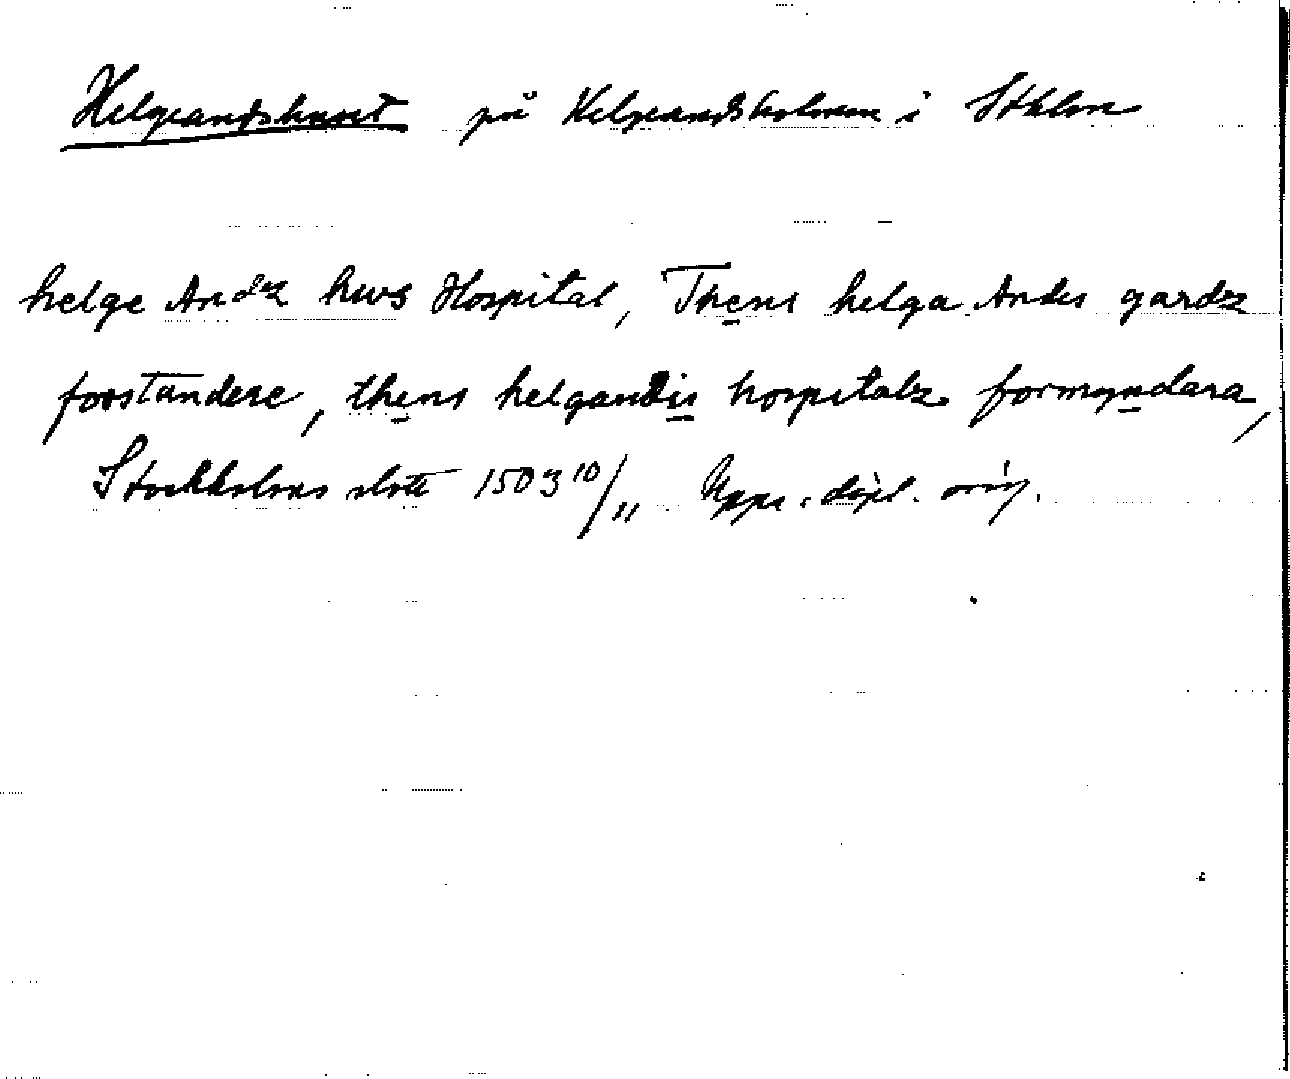 Helgeandshuset på Helgeandsholmen i Sthlm
helge Andz hws Hospital, Thens helga Andes gardz
forstandere, thens helgandis hospitalz formyndara,
Stockholms slott 1503 10/11 Upps. dipl. orig.